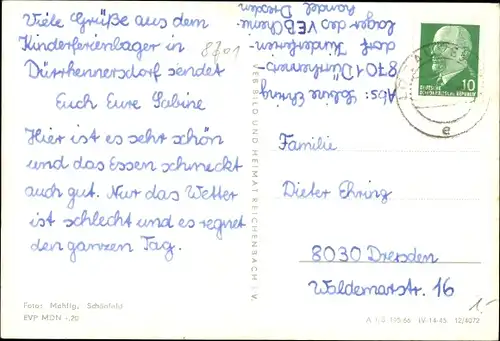 Viele Grüße aus dem
Kinderferienlager in
Dürrhennersdorf sendet
Euch Eure Sabine
Hier ist es sehr schön
und das Essen schmeckt
auch gut. Nur das Wetter
ist schlecht und es regnet
den ganzen Tag.
8701
Foto: Mehlig, Schönfeld
EVP MDN -,20
VEB BILD UND HEIMAT REICHENBACH I. V.
Abs: Sabine Ehring
8701 Dürrhenners-
dorf Kinderferien-
lager des VEB Chemie
handel Dresden
DEUTSCHE
DEMOKRATISCHE REPUBLIK
10
e
Familie
Dieter Ehring
8030 Dresden
Waldemarstr. 16
1.-
A 1/B 195/66 IV-14-45 12/4072